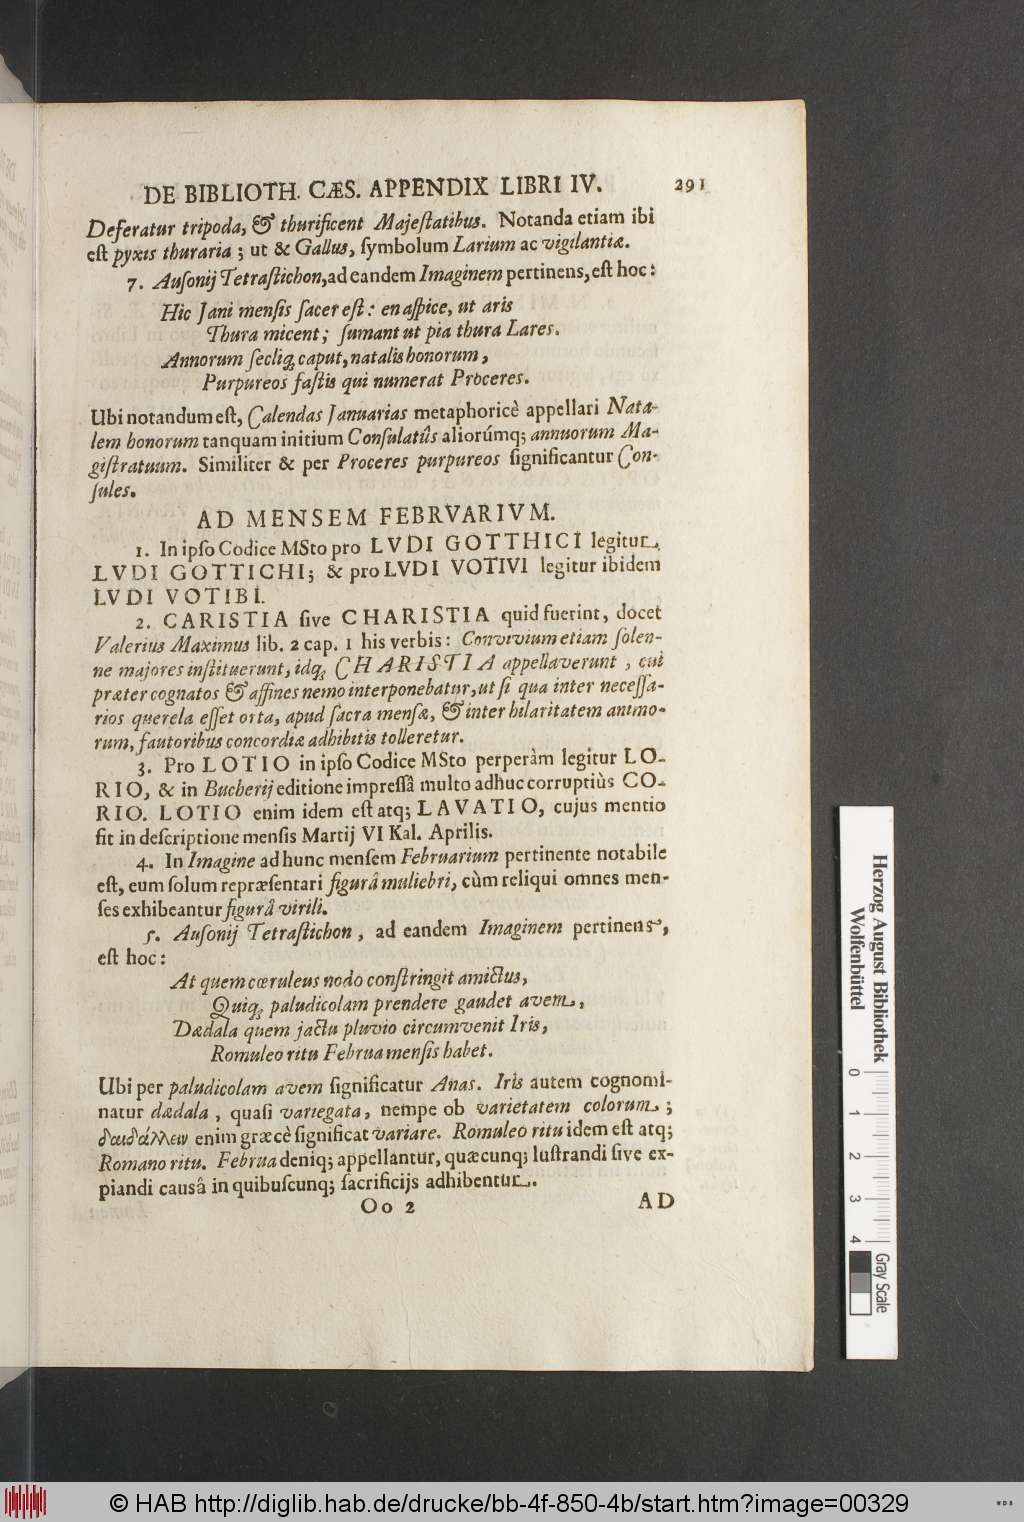 DE BIBLIOTH. CÆS. APPENDIX LIBRI IV. 291
Deferatur tripoda, & thurificent Majeſtatibus. Notanda etiam ibi
eſt pyxis thuraria ; ut & Gallus, ſymbolum Larium ac vigilantiæ.
7. Auſonij Tetraſtichon, ad eandem Imaginem pertinens, eſt hoc:
Hic Jani menſis ſacer eſt: en aſpice, ut aris
Thura micent; ſumant ut pia thura Lares.
Annorum ſecliq; caput, natalis honorum,
Purpureos faſtis qui numerat Proceres.
Ubi notandum eſt, Calendas Januarias metaphoricè appellari Nata-
lem honorum tanquam initium Conſulatûs aliorúmq; annuorum Ma-
giſtratuum. Similiter & per Proceres purpureos ſignificantur Con-
ſules.
AD MENSEM FEBRVARIVM.
1. In ipſo Codice MSto pro LVDI GOTTHICI legitur
LVDI GOTTICHI; & pro LVDI VOTIVI legitur ibidem
LVDI VOTIBI.
2. CARISTIA ſive CHARISTIA quid fuerint, docet
Valerius Maximus lib. 2 cap. 1 his verbis: Convivium etiam ſolen-
ne majores inſtituerunt, idq; CHARISTIA appellaverunt, cui
præter cognatos & affines nemo interponebatur, ut ſi qua inter neceſſa-
rios querela eſſet orta, apud ſacra menſæ, & inter hilaritatem animo-
rum, fautoribus concordiæ adhibitis tolleretur.
3. Pro LOTIO in ipſo Codice MSto perperàm legitur LO-
RIO, & in Bucherij editione impreſſâ multo adhuc corruptiùs CO-
RIO. LOTIO enim idem eſt atq; LAVATIO, cujus mentio
fit in deſcriptione menſis Martij VI Kal. Aprilis.
4. In Imagine ad hunc menſem Februarium pertinente notabile
eſt, eum ſolum repræſentari figurâ muliebri, cùm reliqui omnes men-
ſes exhibeantur figurâ virili.
5. Auſonij Tetraſtichon, ad eandem Imaginem pertinens,
eſt hoc:
At quem cœruleus nodo conſtringit amictus,
Quiq; paludicolam prendere gaudet avem,
Dædala quem jactu pluvio circumvenit Iris,
Romuleo ritu Februa menſis habet.
Ubi per paludicolam avem ſignificatur Anas. Iris autem cognomi-
natur dædala, quaſi variegata, nempe ob varietatem colorum ;
δαιδάλλειν enim græcè ſignificat variare. Romuleo ritu idem eſt atq;
Romano ritu. Februa deniq; appellantur, quæcunq; luſtrandi ſive ex-
piandi causâ in quibuſcunq; ſacrificijs adhibentur.
Oo 2 AD
Herzog August Bibliothek
Wolfenbüttel
0 1 2 3 4
Gray Scale
© HAB http://diglib.hab.de/drucke/bb-4f-850-4b/start.htm?image=00329